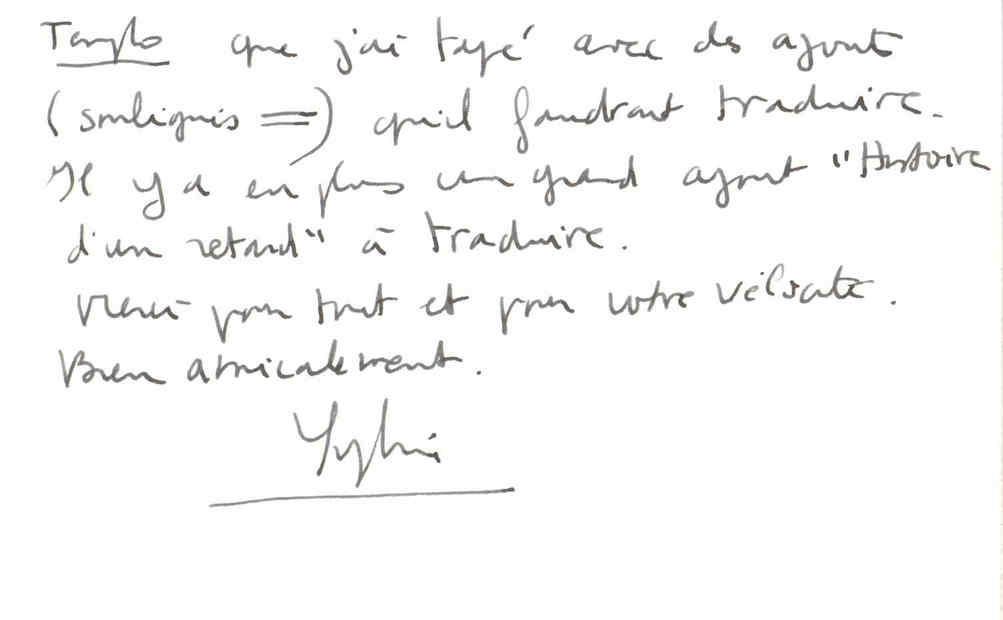 que j'ai tapé avec des ajouts
(soulignés =) qu'il faudrait traduire.
Il y a en plus un grand ajout "Histoire
d'un retard" à traduire.
Merci pour tout et pour votre
Bien amicalement.
Sylvie